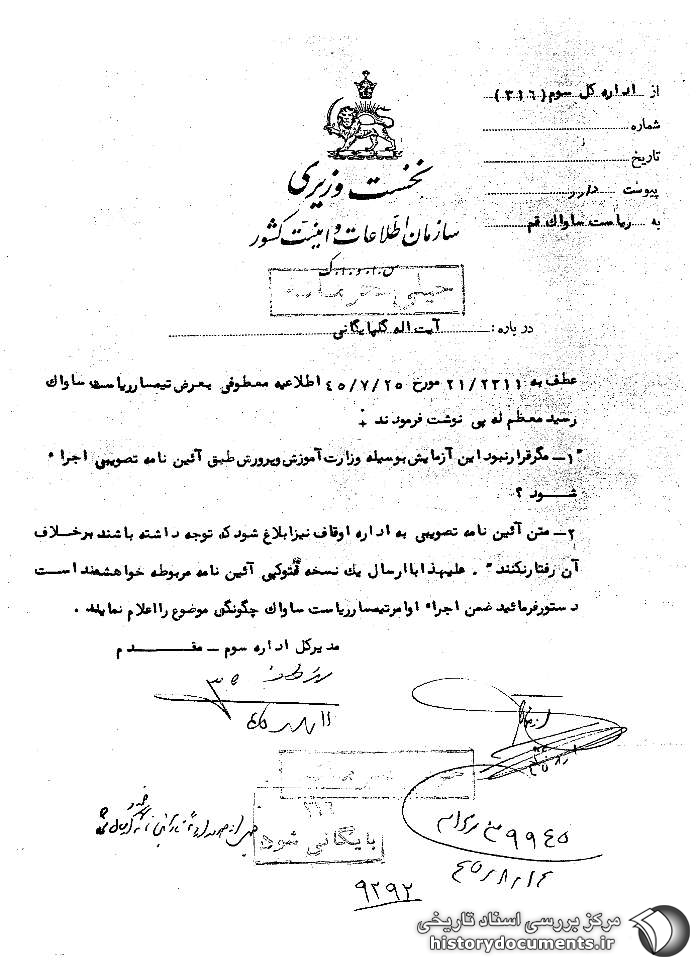 از اداره کل سوم (۳۱۶)
شماره
تاریخ
پیوست دارد
به ریاست ساواک قم
نخست وزیری
سازمان اطلاعات و امنیت کشور
س.ا.و.ا.ک
خیلی محرمانه
درباره: آیت اله گلپایگانی
عطف به ۲۱/۲۳۱۱ مورخ ۴۵/۷/۲۵ اطلاعیه معطوفی بعرض تیمسار ریاست ساواک
رسید معظم له پی نوشت فرمودند
"۱- مگر قرار نبود این آزمایش بوسیله وزارت آموزش و پرورش طبق آئین نامه تصویبی اجراء
شود ؟
۲- متن آئین نامه تصویبی به اداره اوقاف نیز ابلاغ شود که توجه داشته باشند برخلاف
آن رفتار نکنند". علیهذا با ارسال یک نسخه فتوکپی آئین نامه مربوطه خواهشمند است
دستور فرمائید ضمن اجراء اوامر تیمسار ریاست ساواک چگونگی موضوع را اعلام نمایند .
مدیرکل اداره سوم - مقدم
۳۱۶
بایگانی شود
۹۹۴۵
۴۵/۸/۱۴
۹۲۹۲
مرکز بررسی اسناد تاریخی
historydocuments.ir